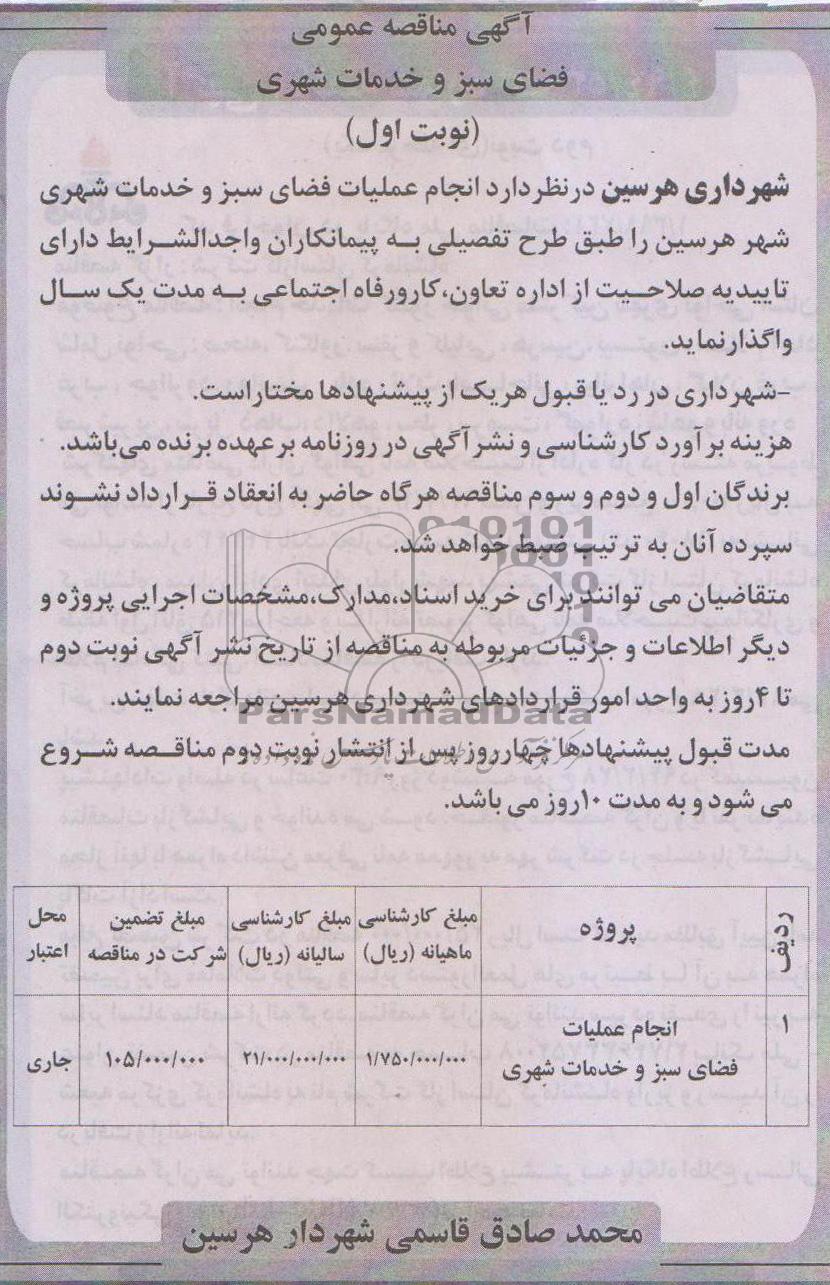 آگهی مناقصه عمومی
فضای سبز و خدمات شهری
(نوبت اول)
شهرداری هرسین درنظردارد انجام عملیات فضای سبز و خدمات شهری
شهر هرسین را طبق طرح تفصیلی به پیمانکاران واجدالشرایط دارای
تاییدیه صلاحیت از اداره تعاون،کارورفاه اجتماعی به مدت یک سال
واگذارنماید.
-شهرداری در رد یا قبول هریک از پیشنهادها مختاراست.
هزینه برآورد کارشناسی و نشرآگهی در روزنامه برعهده برنده می‌باشد.
برندگان اول و دوم و سوم مناقصه هرگاه حاضر به انعقاد قرارداد نشوند
سپرده آنان به ترتیب ضبط خواهد شد.
متقاضیان می توانند برای خرید اسناد،مدارک،مشخصات اجرایی پروژه و
دیگر اطلاعات و جزئیات مربوطه به مناقصه از تاریخ نشر آگهی نوبت دوم
تا ۴روز به واحد امور قراردادهای شهرداری هرسین مراجعه نمایند.
ParsNamadData
مدت قبول پیشنهادها چهارروز پس از انتشار نوبت دوم مناقصه شروع
می شود و به مدت ۱۰روز می باشد.
ردیف پروژه مبلغ کارشناسی ماهیانه (ریال) مبلغ کارشناسی سالیانه (ریال) مبلغ تضمین شرکت در مناقصه محل اعتبار
۱ انجام عملیات فضای سبز و خدمات شهری ۱/۷۵۰/۰۰۰/۰۰۰ ۲۱/۰۰۰/۰۰۰/۰۰۰ ۱۰۵/۰۰۰/۰۰۰ جاری
محمد صادق قاسمی شهردار هرسین